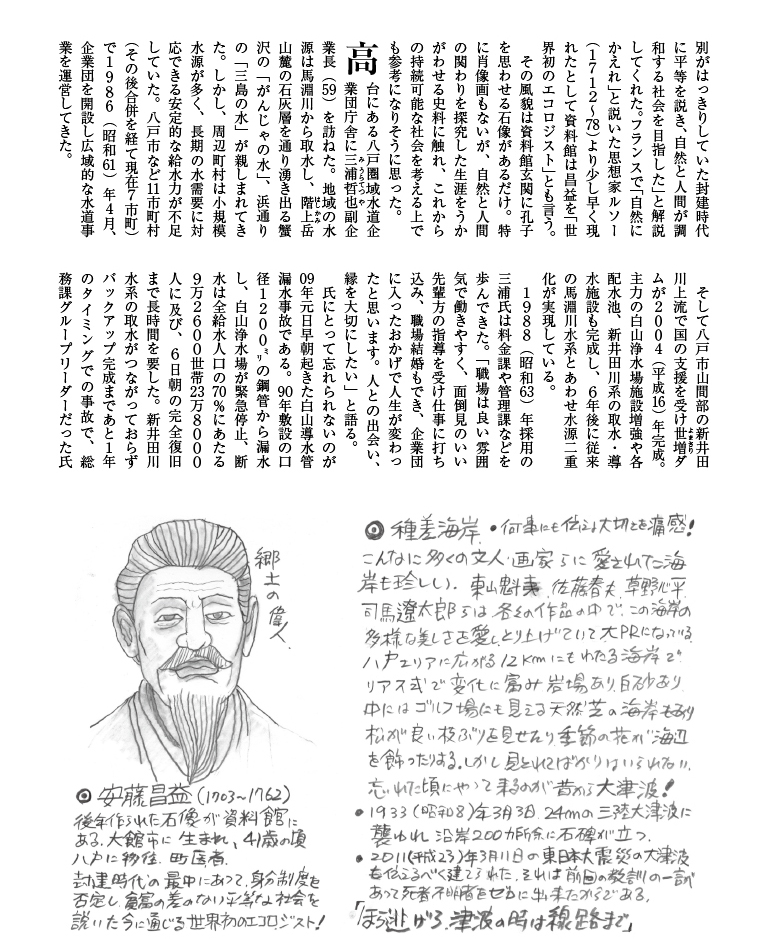 別がはっきりしていた封建時代
に平等を説き、自然と人間が調
和する社会を目指した」と解説
してくれた。フランスで「自然に
かえれ」と説いた思想家ルソー
(1712〜78)より少し早く現
れたとして資料館は昌益を「世
界初のエコロジスト」とも言う。
その風貌は資料館玄関に孔子
を思わせる石像があるだけ。特
に肖像画もないが、自然と人間
の関わりを探究した生涯をうか
がわせる史料に触れ、これから
の持続可能な社会を考える上で
も参考になりそうに思った。
高台にある八戸圏域水道企
業団庁舎に三浦哲也副企
業長(59)を訪ねた。地域の水
源は馬淵川から取水し、階上岳
山麓の石灰層を通り湧き出る蟹
沢の「がんじゃの水」、浜通り
の「三島の水」が親しまれてき
た。しかし、周辺町村は小規模
水源が多く、長期の水需要に対
応できる安定的な給水力が不足
していた。八戸市など11市町村
(その後合併を経て現在7市町)
で1986(昭和61)年4月、
企業団を開設し広域的な水道事
業を運営してきた。
そして八戸市山間部の新井田
川上流で国の支援を受け世増ダ
ムが2004(平成16)年完成。
主力の白山浄水場施設増強や各
配水池、新井田川系の取水・導
水施設も完成し、6年後に従来
の馬淵川水系とあわせ水源二重
化が実現している。
1988(昭和63)年採用の
三浦氏は料金課や管理課などを
歩んできた。「職場は良い雰囲
気で働きやすく、面倒見のいい
先輩方の指導を受け仕事に打ち
込み、職場結婚もでき、企業団
に入ったおかげで人生が変わっ
たと思います。人との出会い、
縁を大切にしたい」と語る。
氏にとって忘れられないのが
09年元日早朝起きた白山導水管
漏水事故である。90年敷設の口
径1200㍉の鋼管から漏水
し、白山浄水場が緊急停止、断
水は全給水人口の70%にあたる
9万2600世帯23万8000
人に及び、6日朝の完全復旧
まで長時間を要した。新井田川
水系の取水がつながっておらず
バックアップ完成まであと1年
のタイミングでの事故で、総
務課グループリーダーだった氏
郷土の偉人
◎ 安藤昌益(1703〜1762)
後年作られた石像が資料館に
ある。大館市に生まれ、41歳の頃
八戸に移住。町医者。
封建時代の最中にあって、身分制度を
否定し、貧富の差のない平等な社会を
説いた今に通じる世界初のエコロジスト!
◎ 種差海岸 ・何事にも伝える大切さを痛感!
こんなに多くの文人・画家らに愛された海
岸も珍しい。東山魁夷、佐藤春夫、草野心平、
司馬遼太郎らは各々の作品の中で、この海岸の
多様な美しさを愛し、とり上げていて大PRになっている。
八戸エリアに広がる12kmにもわたる海岸で
リアス式で変化に富み岩場あり、白砂あり、
中にはゴルフ場にも見える天然芝の海岸もあり
松が良い枝ぶりを見せたり、季節の花が海辺
を飾ったりする。しかし見とれてばかりはいられない。
忘れた頃にやって来るのが昔から大津波!
・1933(昭和8)年3月3日、24mの三陸大津波に
襲われ、沿岸200カ所余に石碑が立つ。
・2011(平成23)年3月11日の東日本大震災の大津波
を伝えるべく建てられた。それは前回の教訓の一言が
あって死者不明者をゼロに出来たからである。
「ほら逃げろ、津波の時は線路まで」